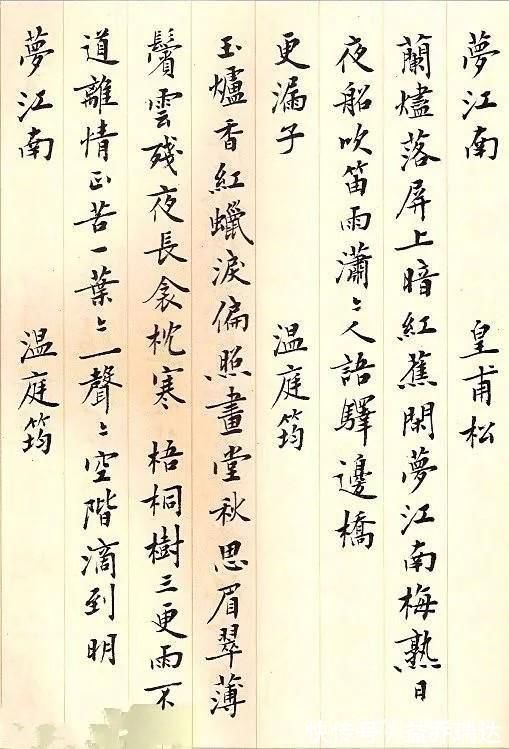 夢江南 皇甫松
蘭燼落屏上暗紅蕉閑夢江南梅熟日
夜船吹笛雨瀟〻人語驛邊橋
更漏子 温庭筠
玉爐香紅蠟淚偏照畫堂秋思眉翠薄
鬢雲殘夜長衾枕寒 梧桐樹三更雨不
道離情正苦一葉〻一聲〻空階滴到明
夢江南 温庭筠